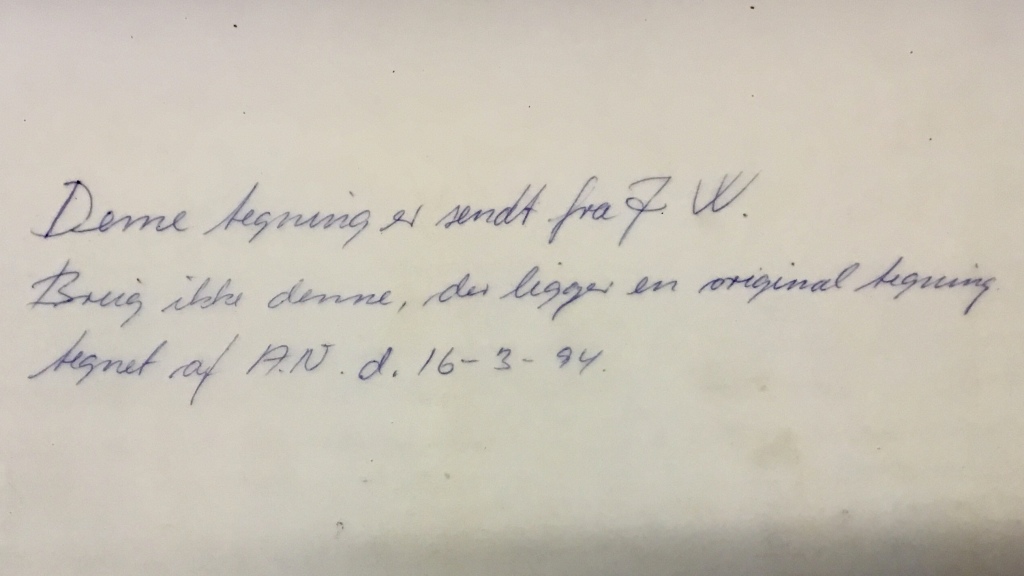 Denne tegning er sendt fra F. W.
Brug ikke denne, der ligger en original tegning
tegnet af A.N. d. 16-3-94.